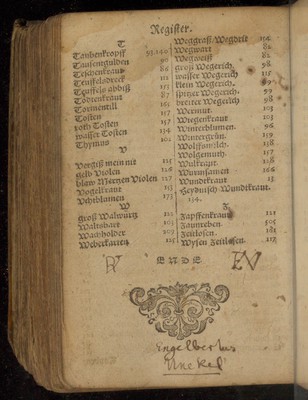 Register.
T
Taubenkropff 93.140
Tausentgülden 90
Teschenkraut 86
Teuffelsdreck 111
Teuffels abbiß 153
Todtenkraut 165
Tormentill 165
Tosten 157
roth Tosten 134
weisser Tosten 134
Thymus 102
V
Vergiß mein nit 115
gelb Violen 126
blaw Mertzen Violen 127
Vogelkraut 151
Vehebluemen 173
W
groß Walwurtz 122
Waltzhart 104
Wachholder 109
Weberkarten 125
Weggraß/Wegdrit 154
Wegwart 82
Wegweiß 82
groß Wegerich 98
weisser Wegerich 115
klein Wegerich 67
spitzer Wegerich 99
breiter Wegerich 98
Wermut 103
Wiegenkraut 103
Winterblumen 96
Wintergrün 159
Wolffsmilch 138
Wolgemuth 157
Wulkraut 128
Wurmsamen 186
Wundtkraut 13
Heydnisch Wundtkraut
134.
Z
Zapffenkraut 121
Zaunreben 505
Zeitlosen 181
Wysen Zeitlosen 117
ENDE
Engelbertus
Unckel